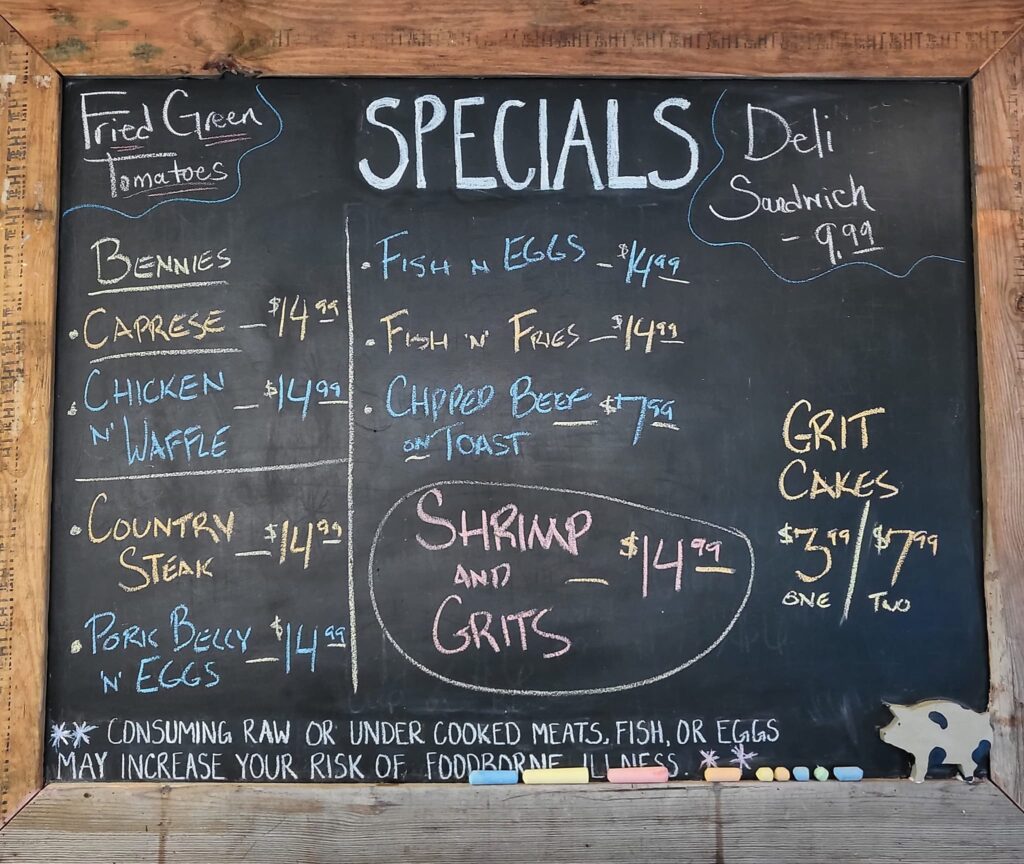 SPECIALS
Fried Green
Tomatoes
Deli
Sandwich
- 9.99
BENNIES
• CAPRESE - $14.99
• CHICKEN - $14.99
N' WAFFLE
• COUNTRY
STEAK - $14.99
• PORK BELLY - $14.99
N' EGGS
• FISH N EGGS - $14.99
• FISH 'N' FRIES - $14.99
• CHPPED BEEF $7.99
ON TOAST
SHRIMP
AND - $14.99
GRITS
GRIT
CAKES
$3.99 / $7.99
ONE TWO
** CONSUMING RAW OR UNDER COOKED MEATS, FISH, OR EGGS
MAY INCREASE YOUR RISK OF FOODBORNE ILLNESS. **